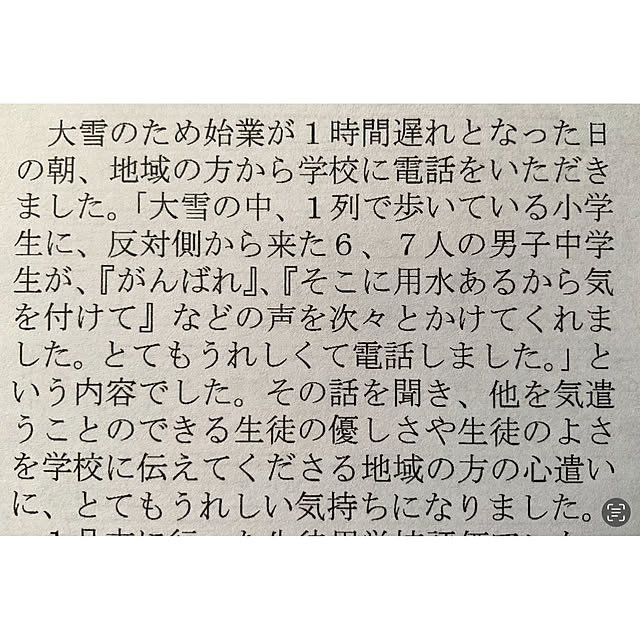 大雪のため始業が１時間遅れとなった日
の朝、地域の方から学校に電話をいただき
ました。「大雪の中、１列で歩いている小学
生に、反対側から来た６、７人の男子中学
生が、『がんばれ』、『そこに用水あるから気
を付けて』などの声を次々とかけてくれま
した。とてもうれしくて電話しました。」と
いう内容でした。その話を聞き、他を気遣
うことのできる生徒の優しさや生徒のよさ
を学校に伝えてくださる地域の方の心遣い
に、とてもうれしい気持ちになりました。